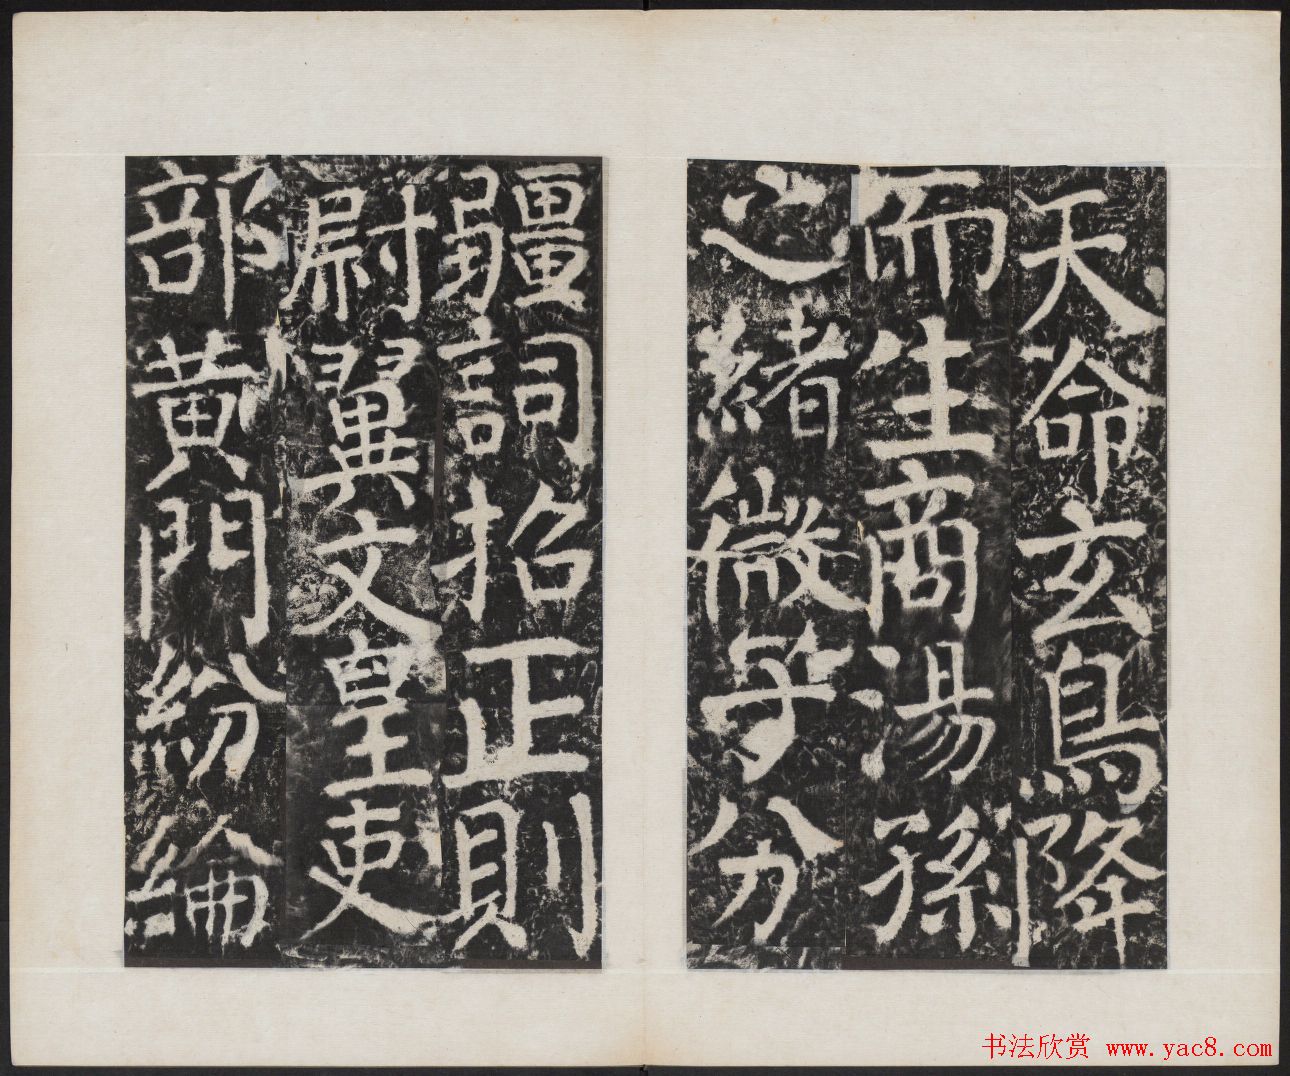 天命玄鳥降
而生商湯孫
之緒微子分
疆詞招正則
尉翼文皇吏
部黃門紛綸
书法欣赏 www.yac8.com